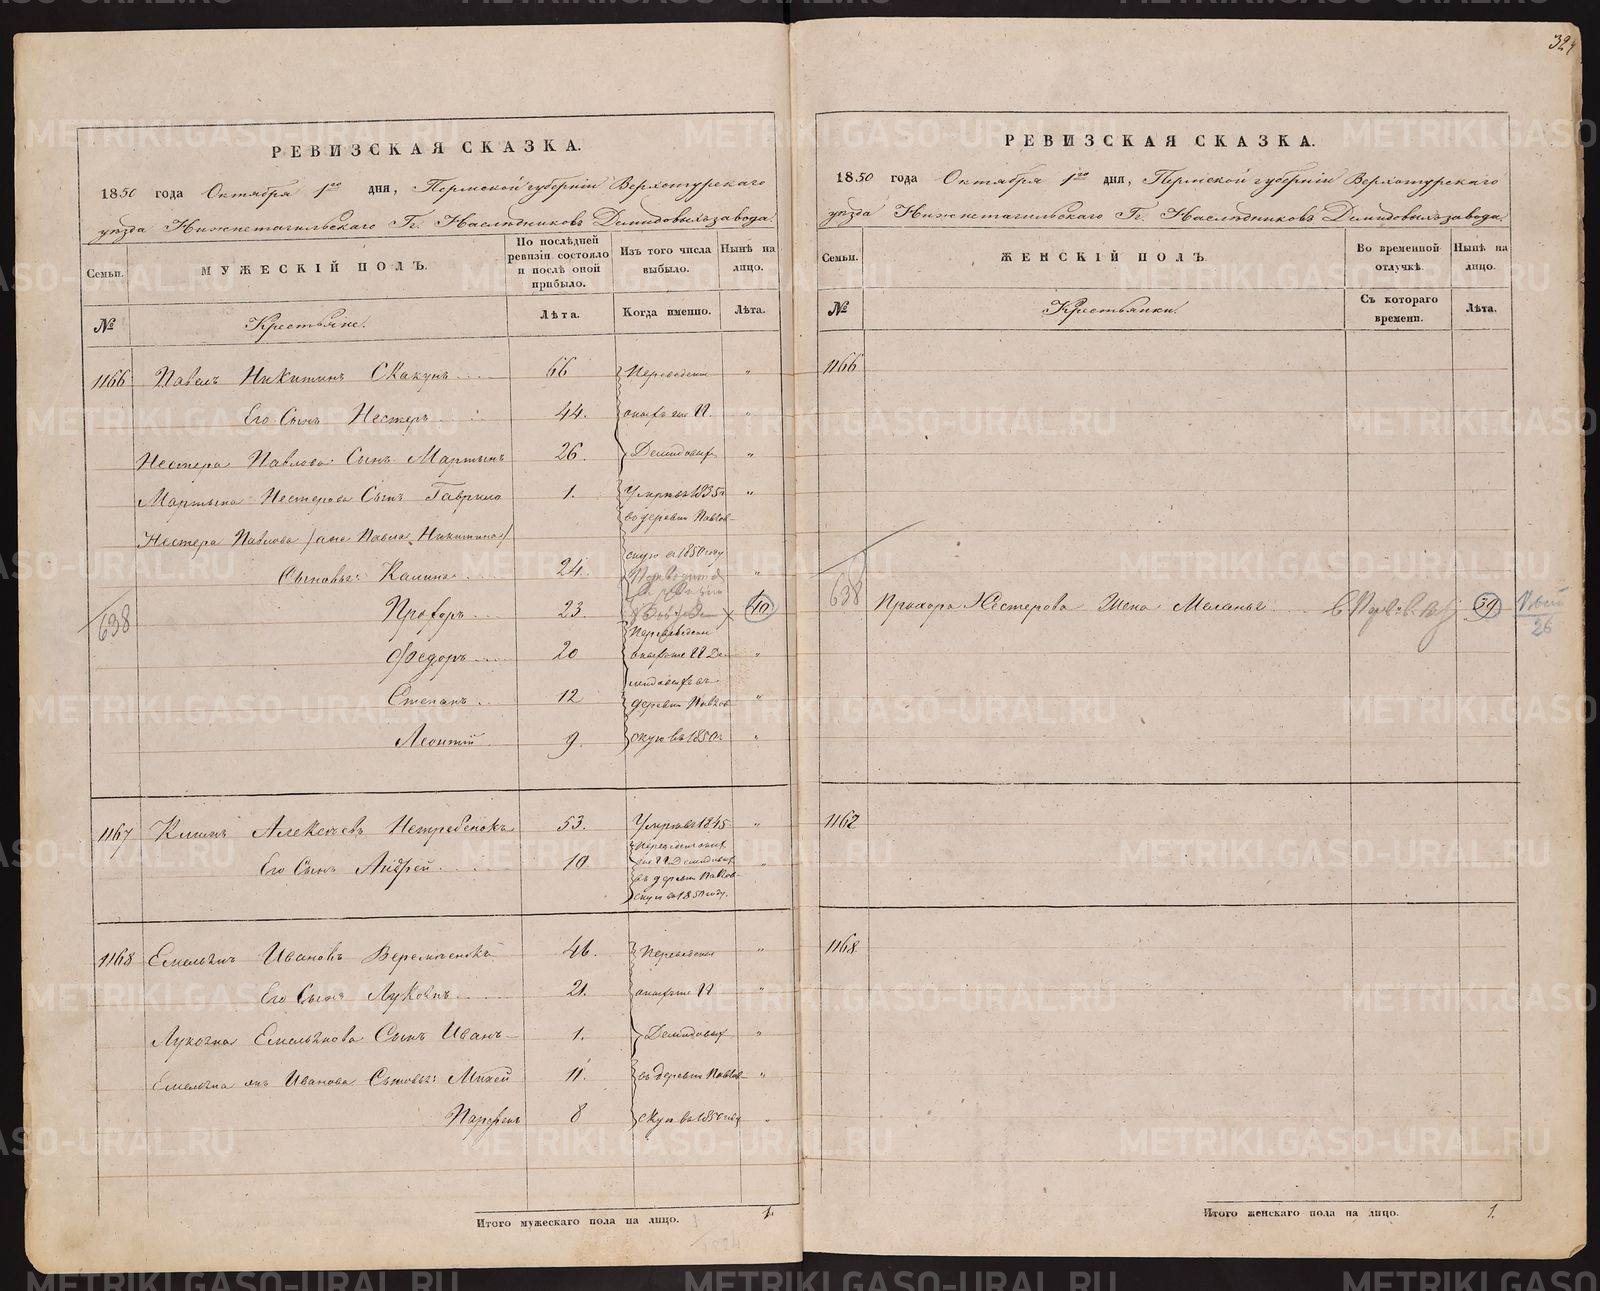 324
РЕВИЗСКАЯ СКАЗКА.
1850 года Октября 1го дня, Пермской губернiи Верхотурскаго
уѣзда Нижнетагильскаго Гг. Наслѣдниковъ Демидовыхъ завода.
Семьи.
МУЖЕСКIЙ ПОЛЪ.
По послѣдней ревизiи состояло и послѣ оной прибыло.
Изъ того числа выбыло.
Нынѣ на лицо.
№
Крестьяне.
Лѣта.
Когда именно.
Лѣта.
1166 Павелъ Никитинъ Скакунъ 66 Переведены "
Его Сынъ Нестеръ 44. "
Нестера Павлова Сынъ Мартынъ 26. Демидовых "
Мартына Нестерова Сынъ Гаврило 1. Умръ въ 1835 г "
въ деревню Павлов-
Нестера Павлова /а не Павла Никитина/
скую въ 1850 году
Сыновья: Калина 24. "
638 Прохоръ 23. 40
Переведены
Федоръ 20 "
Степанъ 12 деревню Павлов "
Леонтiй 9. скую въ 1850 г "
1167 Климъ Алексѣевъ Нетребенокъ 53. Умръ въ 1845 "
Его Сынъ Андрей 10. Демидовых "
въ деревню Павлов-
скую въ 1850 году.
1168 Емельянъ Ивановъ Веремѣенокъ 46. Переведены "
Его Сынъ Луковнъ 21. "
Емельянова Сынъ Иванъ 1. Демидовых "
Емельяна Иванова Сыновья: Михей 11. въ деревню Павлов- "
Парфенъ 8 скую въ 1850 году "
Итого мужескаго пола на лицо. 1.
РЕВИЗСКАЯ СКАЗКА.
1850 года Октября 1го дня, Пермской губернiи Верхотурскаго
уѣзда Нижнетагильскаго Гг. Наслѣдниковъ Демидовыхъ завода.
Семьи.
ЖЕНСКIЙ ПОЛЪ.
Во временной отлучкѣ.
Нынѣ на лицо.
№
Крестьянки.
Съ котораго времени.
Лѣта.
1166
638 Прохора Нестерова Жена Маланья 39
26
1167
1168
Итого женскаго пола на лицо. 1.
METRIKI.GASO-URAL.RU